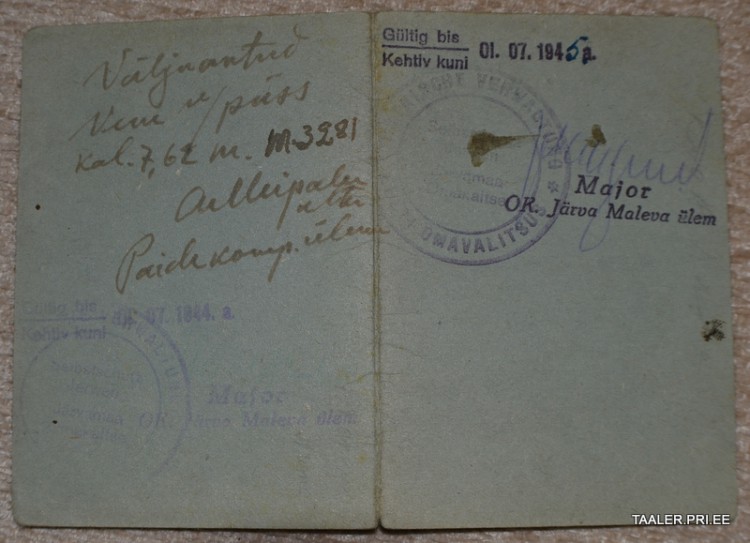 Väljaantud
Vene v/püss
kal. 7,62 m. M.3281
Paide komp. ülem
Gültig bis
Kehtiv kuni
01. 07. 1944. a.
Major
OK. Järva Maleva ülem
Gültig bis
Kehtiv kuni
01. 07. 1945 a.
OMAVALITSU
Major
OK. Järva Maleva ülem
TAALER.PRI.EE